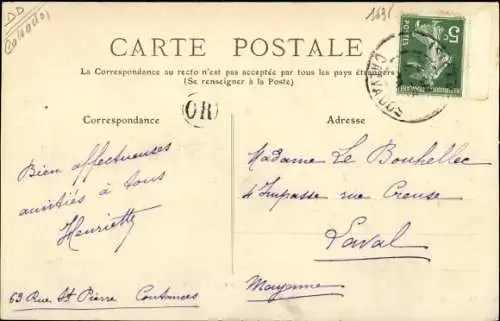 Calvados
CARTE POSTALE
La Correspondance au recto n'est pas acceptée par tous les pays étrangers
(Se renseigner à la Poste)
5c
POSTES
OR
Correspondance
Adresse
Bien affectueuses
amitiés à tous
Henriette
63 Rue St Pierre Coutances
Madame Le Bouhellec
4 Impasse rue Creuse
Laval
Mayenne